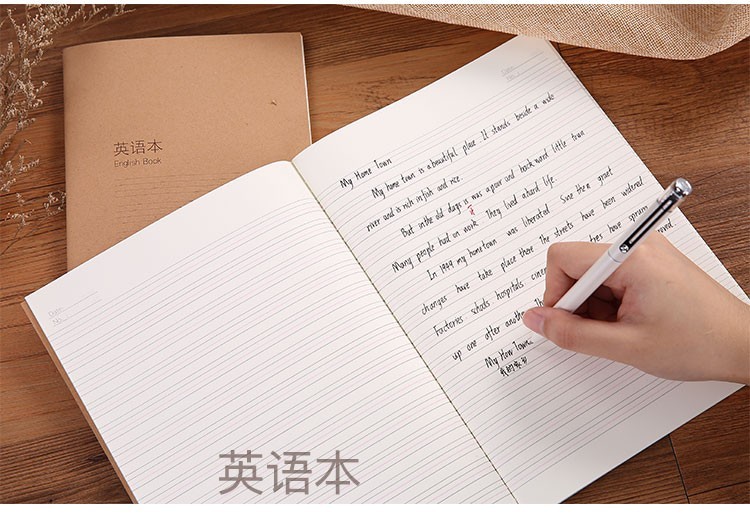 英语本
English Book
Date:
No.:
Date:
No.:
My Home Town
My home town is a beautiful place. It stands beside a wide
river and is rich in fish and rice.
But in the old days is was a poor and back ward little town
it
Many people had on work. They lived a hard life.
In 1949 my hometown was liberated. Sine then great
changes have take place there. The streets have been widened.
Factories schools hospitals cinem trees have sprung
up one after another. Th round.
My How Town.
我的家乡
英语本